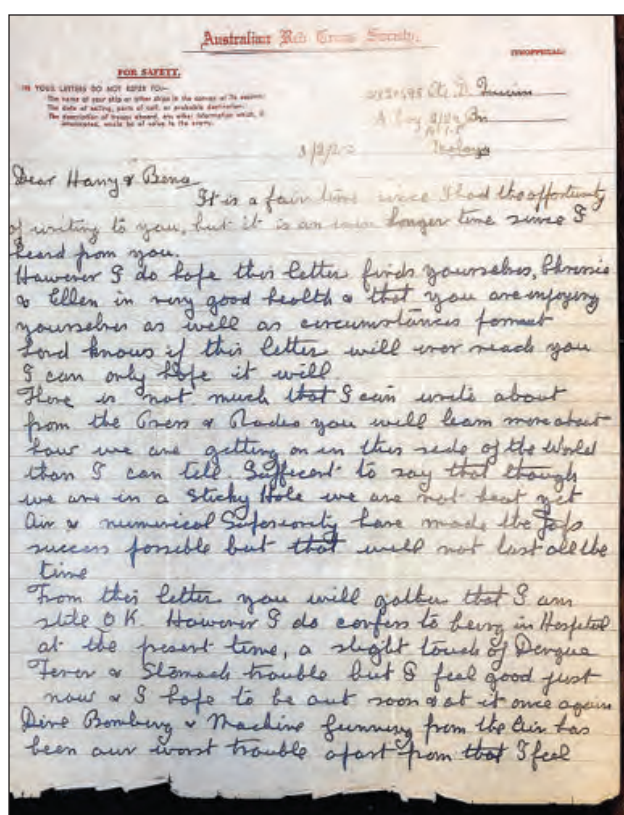 Australian Red Cross Society.
(UNOFFICIAL)
FOR SAFETY.
IN YOUR LETTERS DO NOT REFER TO—
The name of your ship or other ships in the convoy or its escort.
The date of sailing, ports of call, or probable destination.
The description of troops aboard, any other information which, if
intercepted, would be of value to the enemy.
Pte D.
A Coy 2/26 Bn
A.I.F.
Malaya
Dear Harry & Bena
It is a fair time since I had the opportunity
of writing to you, but it is an even longer time since I
heard from you.
However I do hope this letter finds yourselves, Chrissie
& Ellen in very good health & that you are enjoying
yourselves as well as circumstances permit
Lord knows if this letter will ever reach you
I can only hope it will.
There is not much that I can write about
from the Press & Radio you will learn more about
how we are getting on in this side of the World
than I can tell. Sufficent to say that though
we are in a Sticky Hole we are not beat yet
Air & numerical Superiority have made the Japs
success possible but that will not last all the
time
From this letter you will gather that I am
still O K. However I do confess to being in Hospital
at the present time, a slight touch of Dengue
Fever & Stomach trouble but I feel good just
now & I hope to be out soon & at it once again
Dive Bombing & Machine Gunning from the Air has
been our worst trouble apart from that I feel